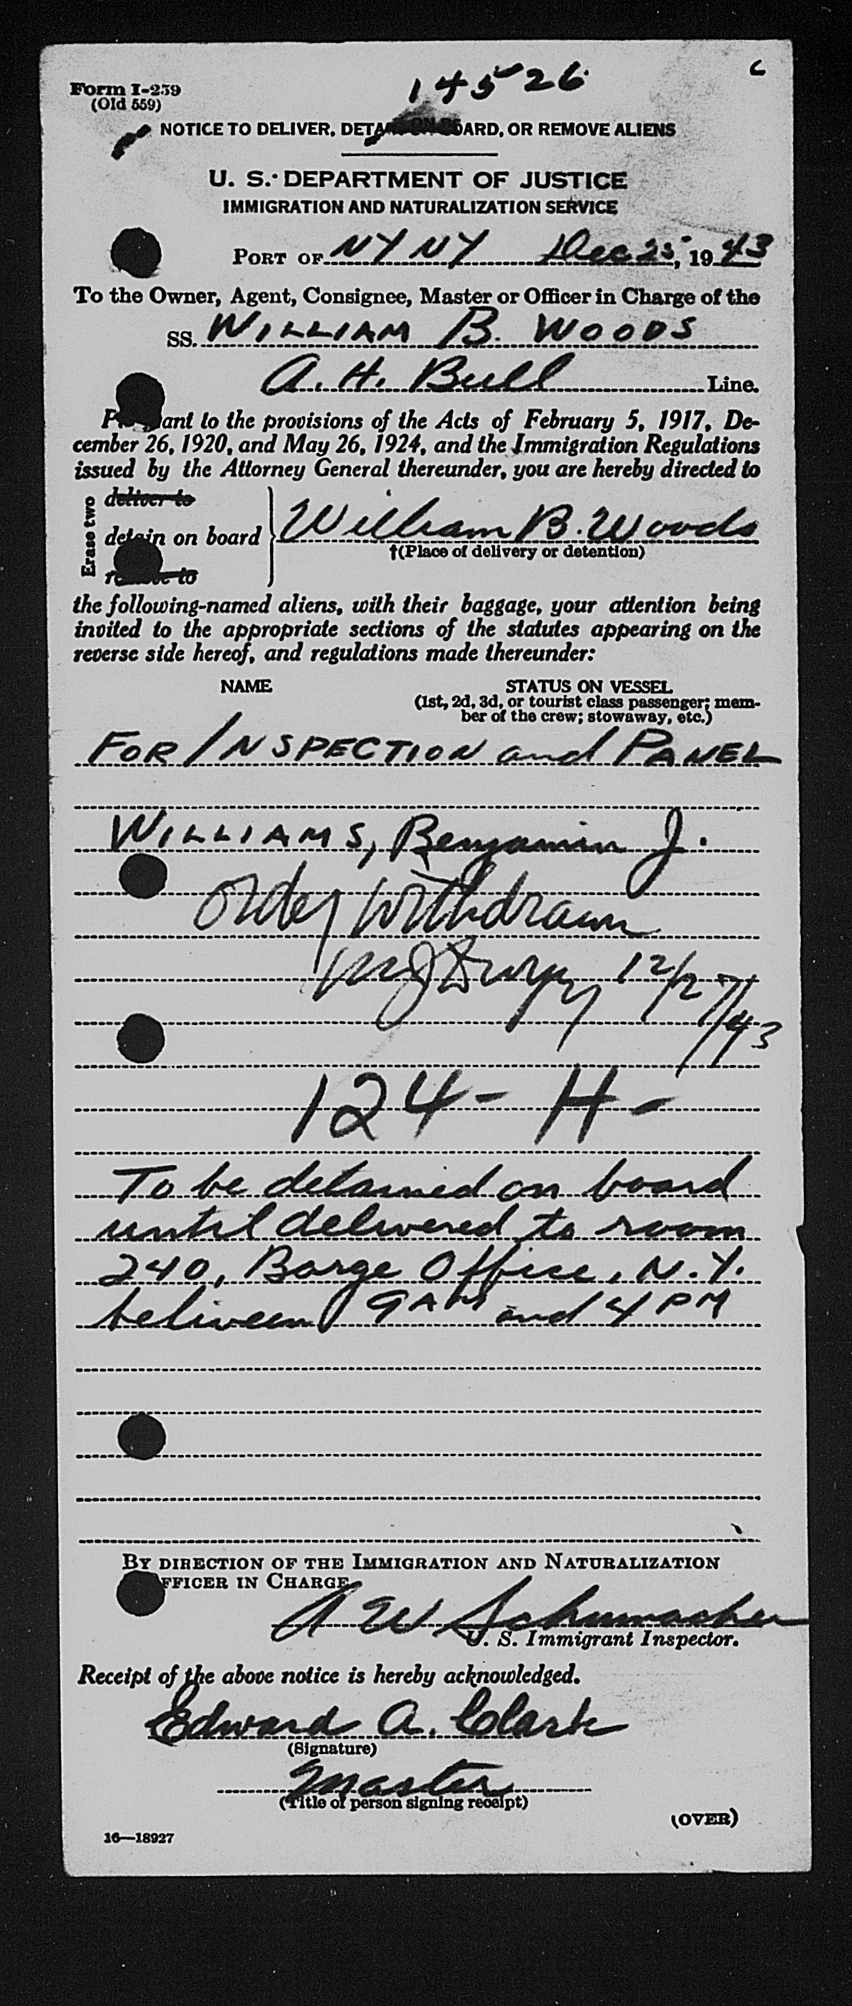 Form I-259
(Old 559)
14526
c
NOTICE TO DELIVER, DETAIN ON BOARD, OR REMOVE ALIENS
U. S. DEPARTMENT OF JUSTICE
IMMIGRATION AND NATURALIZATION SERVICE
PORT OF NY NY Dec 25, 1943
To the Owner, Agent, Consignee, Master or Officer in Charge of the
SS. WILLIAM B. WOODS
A. H. Bull Line.
Pursuant to the provisions of the Acts of February 5, 1917, De-
cember 26, 1920, and May 26, 1924, and the Immigration Regulations
issued by the Attorney General thereunder, you are hereby directed to
Erase two
deliver to
detain on board
remove to
William B. Woods
†(Place of delivery or detention)
the following-named aliens, with their baggage, your attention being
invited to the appropriate sections of the statutes appearing on the
reverse side hereof, and regulations made thereunder:
NAME STATUS ON VESSEL
(1st, 2d, 3d, or tourist class passenger; mem-
ber of the crew; stowaway, etc.)
FOR INSPECTION and PANEL
WILLIAMS, Benjamin J.
Order withdrawn
12/27/43
124 - H -
To be detained on board
until delivered to room
240, Barge Office, N.Y.
between 9 AM and 4 PM
BY DIRECTION OF THE IMMIGRATION AND NATURALIZATION
OFFICER IN CHARGE
A W Schumacher
U. S. Immigrant Inspector.
Receipt of the above notice is hereby acknowledged.
Edward A. Clark
(Signature)
Master
(Title of person signing receipt)
(OVER)
16—18927